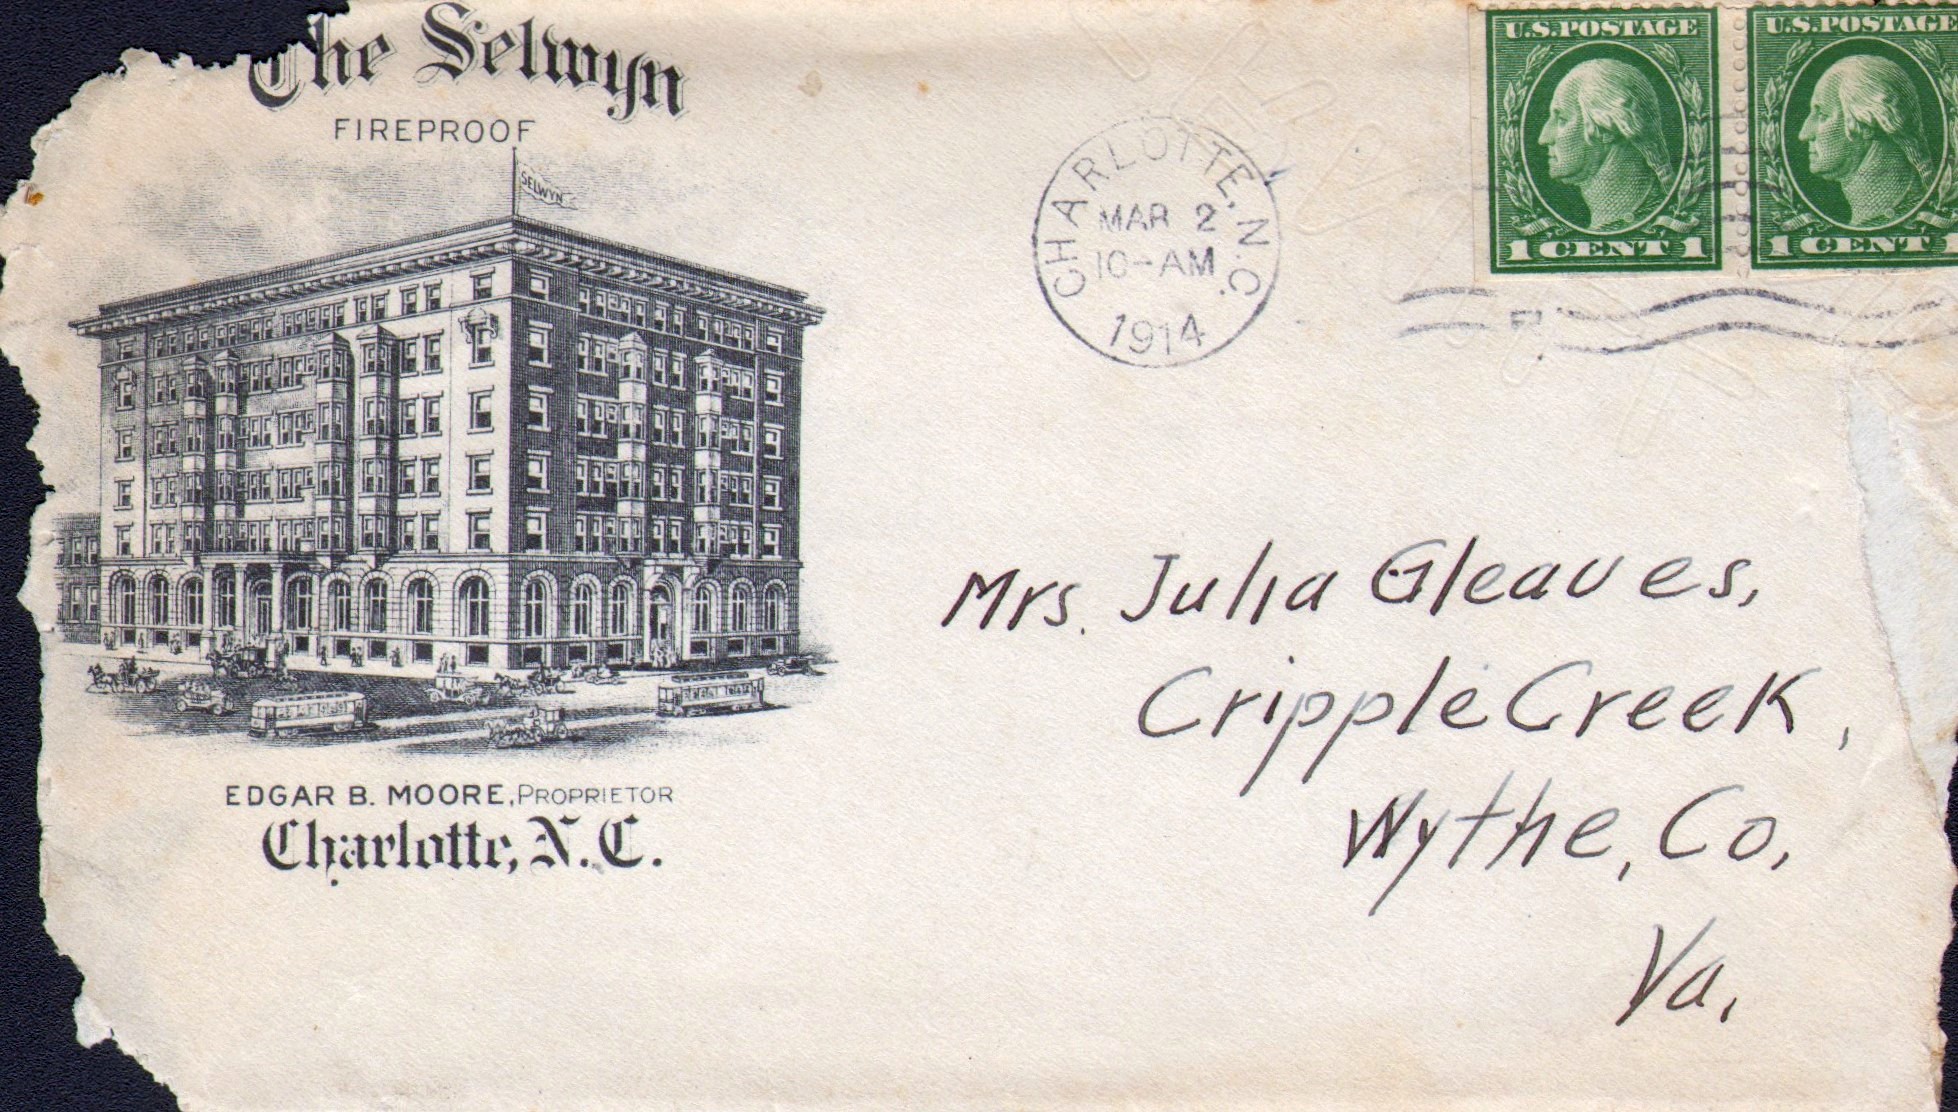 The Selwyn
FIREPROOF
SELWYN
EDGAR B. MOORE, PROPRIETOR
Charlotte, N.C.
CHARLOTTE, N.C.
MAR 2
10-AM
1914
U.S. POSTAGE
1 CENT 1
U.S. POSTAGE
1 CENT 1
Mrs. Julia Gleaves,
Cripple Creek,
Wythe, Co,
Va,